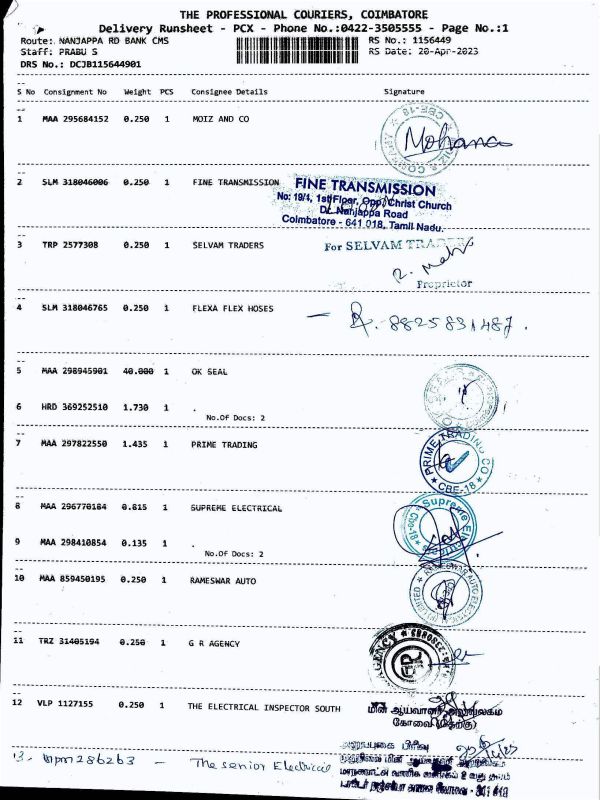 THE PROFESSIONAL COURIERS, COIMBATORE
Delivery Runsheet - PCX - Phone No.:0422-3505555 - Page No.:1
Route: NANJAPPA RD BANK CMS RS No.: 1156449
Staff: PRABU S RS Date: 20-Apr-2023
DRS No.: DCJB115644901
S No Consignment No Weight PCS Consignee Details Signature
1 MAA 295684152 0.250 1 MOIZ AND CO
CBE-18
Mohana
2 SLM 318046006 0.250 1 FINE TRANSMISSION
FINE TRANSMISSION
No: 19/1, 1st Floor, Opp. Christ Church
Dr. Nanjappa Road
Coimbatore - 641 018, Tamil Nadu.
3 TRP 2577308 0.250 1 SELVAM TRADERS
For SELVAM TRADERS
Proprietor
4 SLM 318046765 0.250 1 FLEXA FLEX HOSES
8825831487.
5 MAA 298945901 40.000 1 OK SEAL
6 HRD 369252510 1.730 1 .
No.Of Docs: 2
7 MAA 297822550 1.435 1 PRIME TRADING
PRIME TRADING CO
CBE-18
8 MAA 296770184 0.815 1 SUPREME ELECTRICAL
Supreme
Cbe-18
9 MAA 298410854 0.135 1 .
No.Of Docs: 2
10 MAA 859450195 0.250 1 RAMESWAR AUTO
RAMESWAR AUTO
LIMITED
11 TRZ 31405194 0.250 1 G R AGENCY
AGENCY
GR
12 VLP 1127155 0.250 1 THE ELECTRICAL INSPECTOR SOUTH
மின் ஆய்வாளர் அலுவலகம்
கோவை (தெற்கு)
13. mpm286263 - The senior Electrical